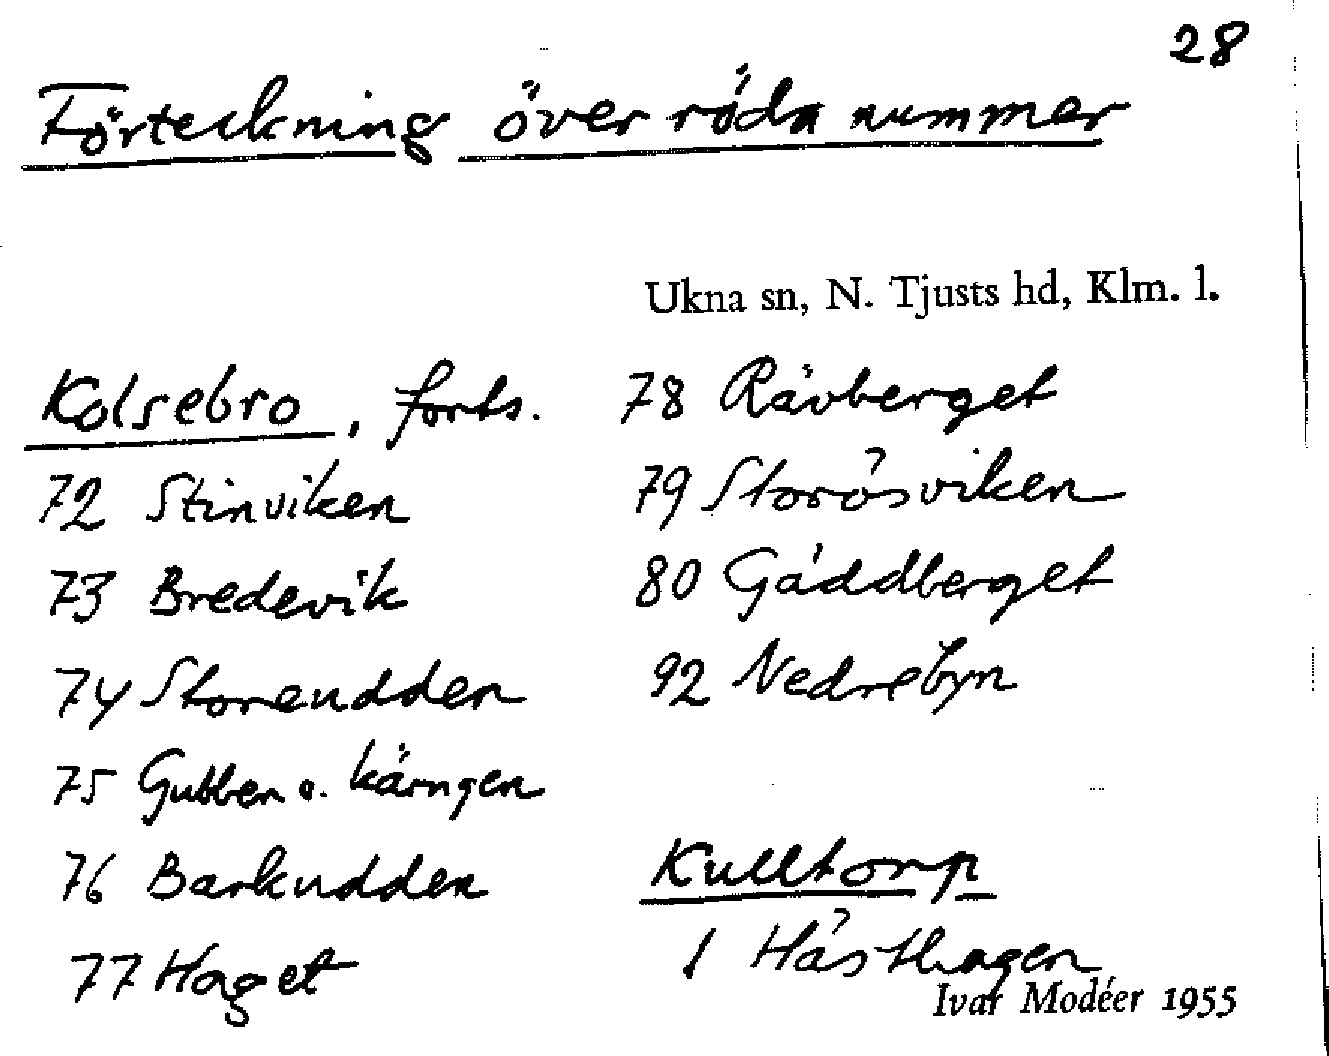 28
Förteckning över röda nummer
Ukna sn, N. Tjusts hd, Klm. l.
Kolsebro, forts.
72 Stinviken
73 Bredevik
74 Storeudden
75 Gubben o. kärngen
76 Barkudden
77 Haget
78 Rävberget
79 Storösviken
80 Gäddberget
92 Nedrebyn
Kulltorp
1 Hästhagen
Ivar Modéer 1955